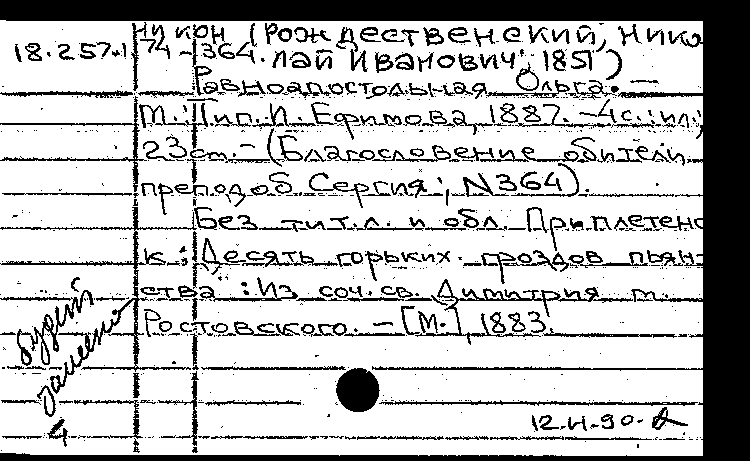 Никон (Рождественский, Нико
18.257.1.74-364. лай Иванович; 1851)
Равноапостольная Ольга. —
М.: Тип. И. Ефимова, 1887. - 4 с.: ил.;
23 см. - (Благословение обители
преподоб. Сергия; N364).
Без тит.л. и обл. Приплетено
к: Десять горьких гроздов пьян-
ства: Из соч. св. Димитрия м.
Ростовского. - [М.], 1883.
12.
90.